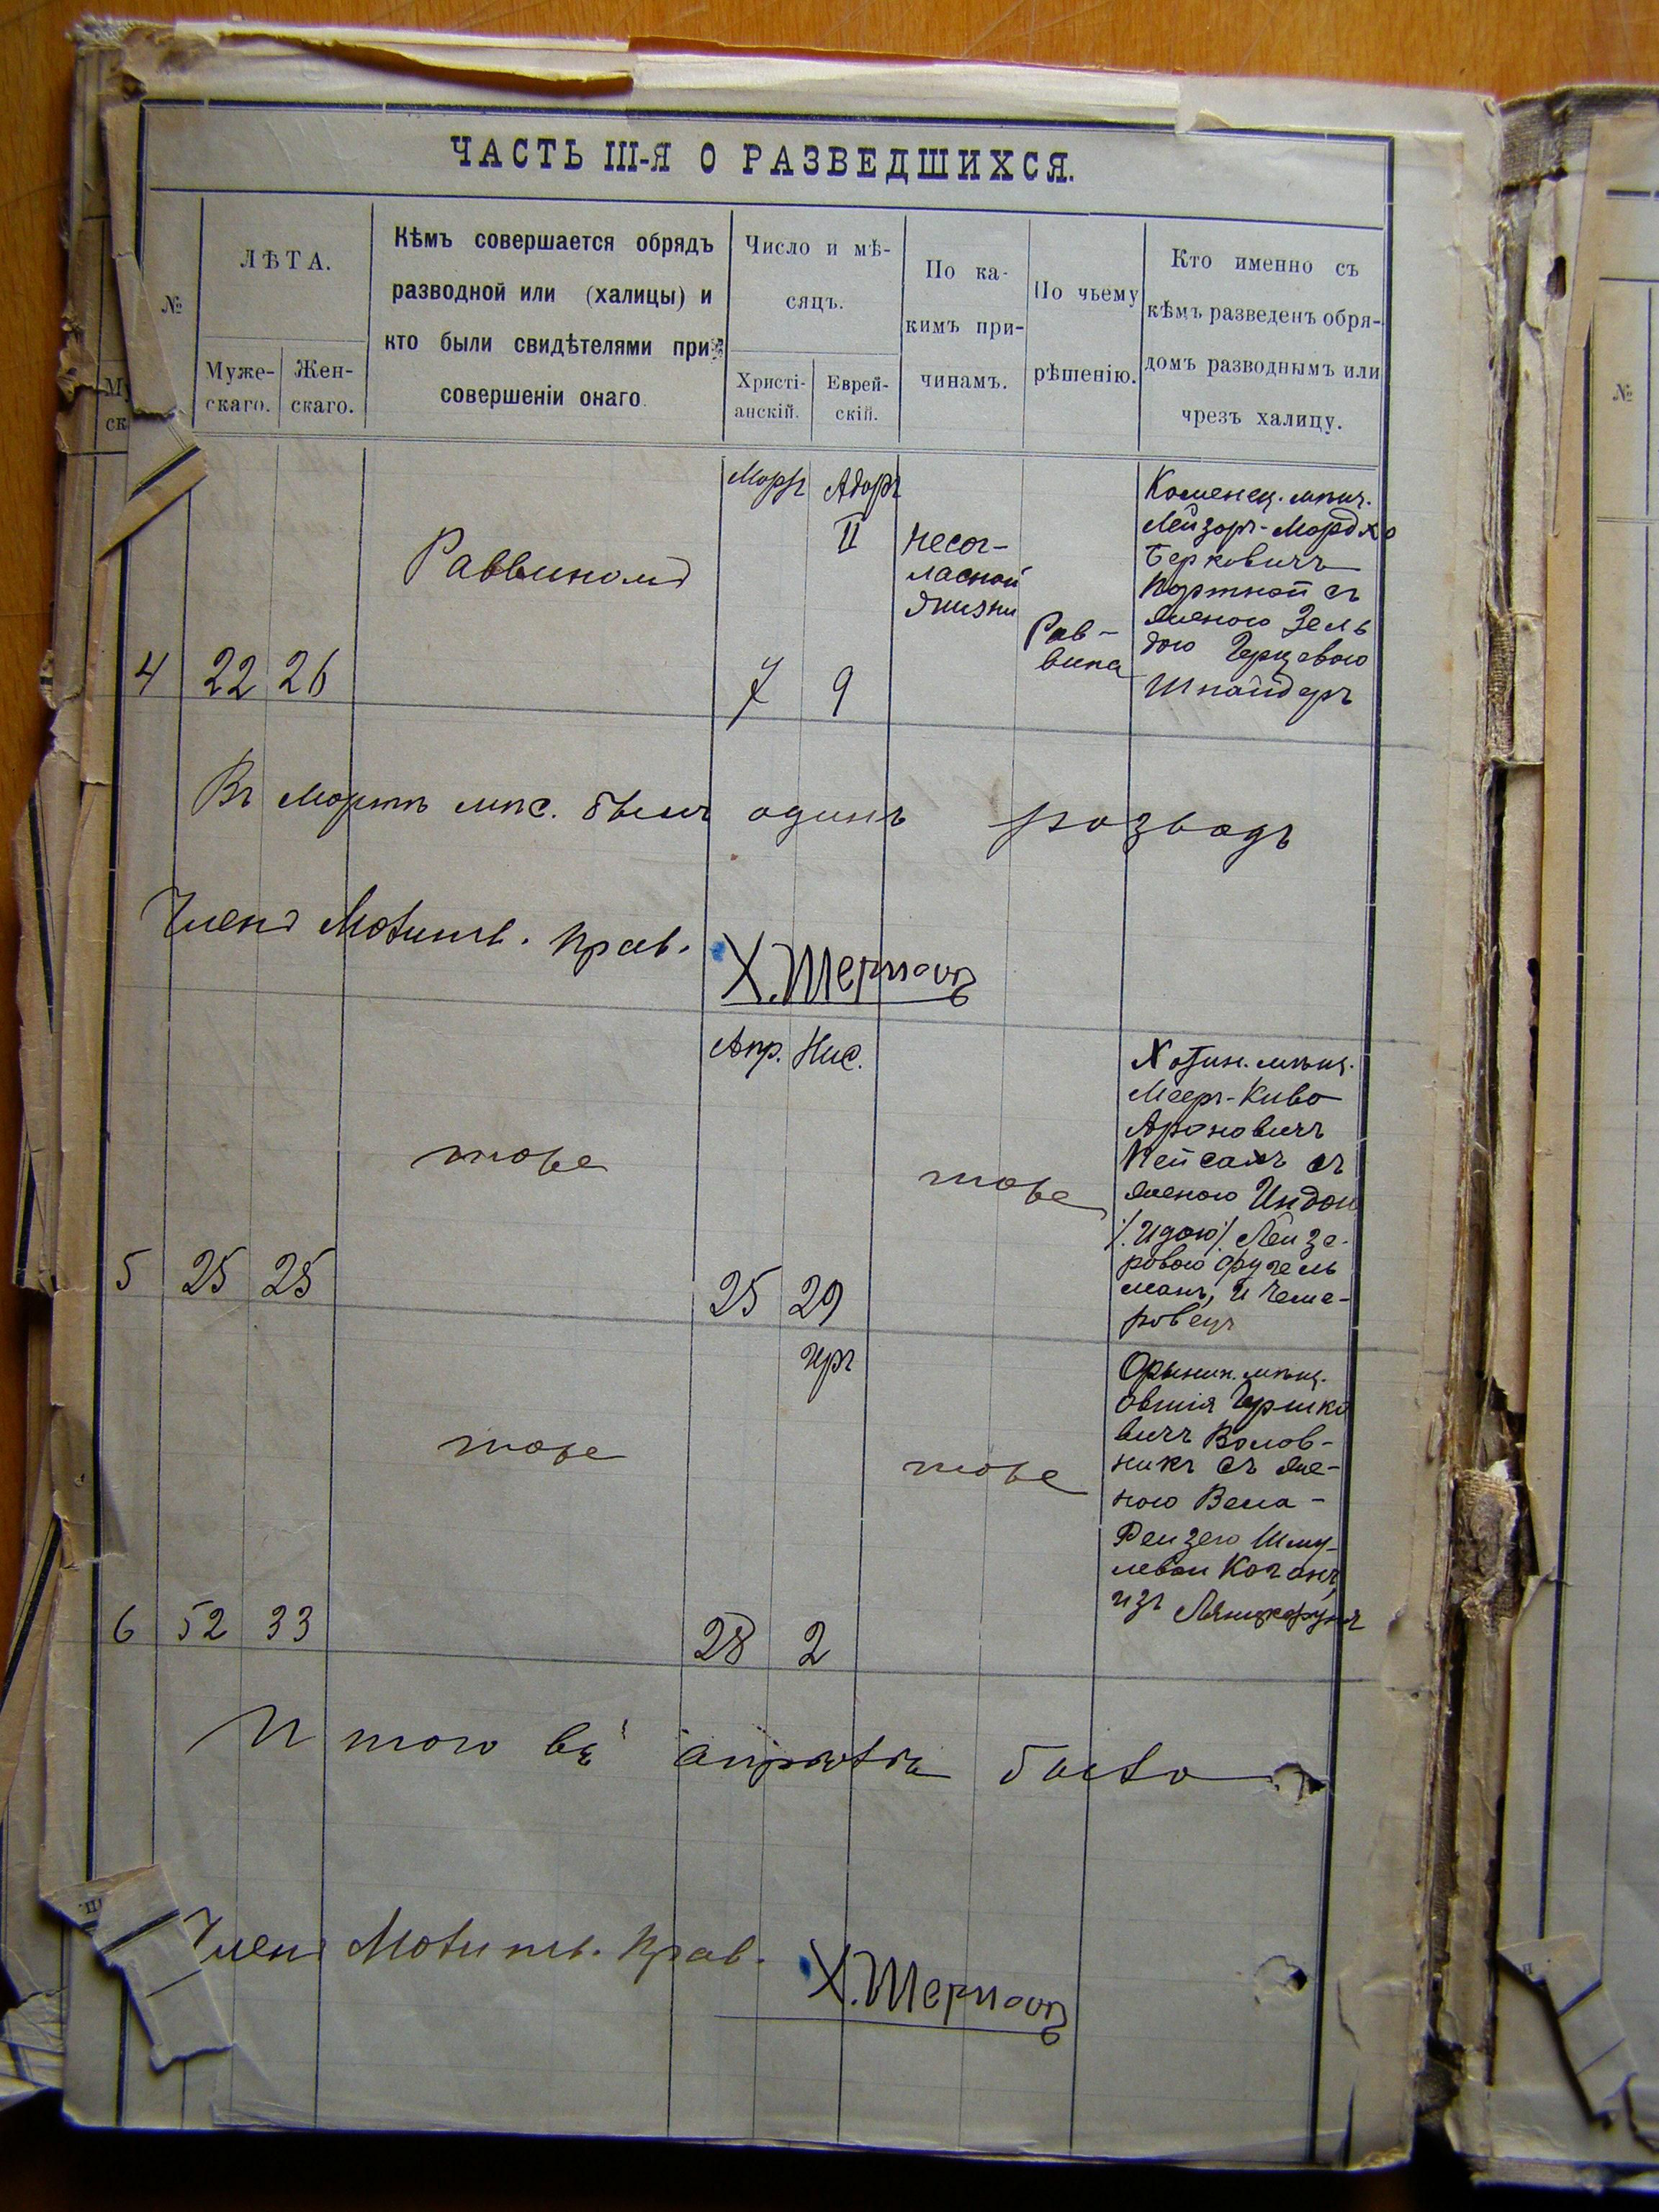 ЧАСТЬ III-Я О РАЗВЕДШИХСЯ.
№
ЛѢТА.
Муже-
скаго.
Жен-
скаго.
Кѣмъ совершается обрядъ
разводной или (халицы) и
кто были свидѣтелями при
совершеніи онаго.
Число и мѣ-
сяцъ.
Христі-
анскій.
Еврей-
скій.
По ка-
кимъ при-
чинамъ.
По чьему
рѣшенію.
Кто именно съ
кѣмъ разведенъ обря-
домъ разводнымъ или
чрезъ халицу.
4
22
26
Раввиномъ
Мартъ
7
Адаръ
II
9
Несог-
ласной
жизни
Рав-
вина
Каменец. мѣщ.
Лейзоръ-Мордко
Берковичъ
Портной съ
женою Зель
дою Герцевою
Шнайдеръ
Въ Мартѣ мѣс. былъ одинъ разводъ
Членъ Молитв. Прав.
5
25
25
тоже
Апр.
25
Нис.
29
тоже
Хотин. мѣщ.
Мееръ-Киво
Ароновичъ
Пейсахъ съ
женою Индою
/. Идою / Лейзе-
ровою Фугель
манъ, и Чеме-
ровецъ
6
52
33
тоже
28
Іяръ
2
тоже
Орынин. мѣщ.
Овшія Гершко
вичъ Волов-
никъ съ же-
ною Вела-
Рейзею Шму-
левой Коганъ
изъ Лянцкоруня
Итого въ апрѣлѣ было
Членъ Молитв. Прав.